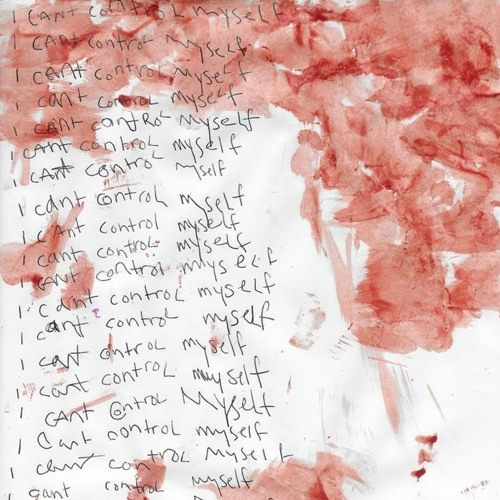 I CANT CONTROL Myself
I CANT CONTROL Myself
I CANT CONTROL Myself
I cant control Myself
I CANT CONTROL Myself
I CANT CONTROL Myself
I CANT CONTROL Myself
I cant control Myself
I CANT control myself
I cant control myself
I CANT CONTROL Myself
I Cant control myself
I cant control myself
I cant control myself
I cant control myself
I CANT control Myself
I Cant control myself
I cant control myself
I cant control myself